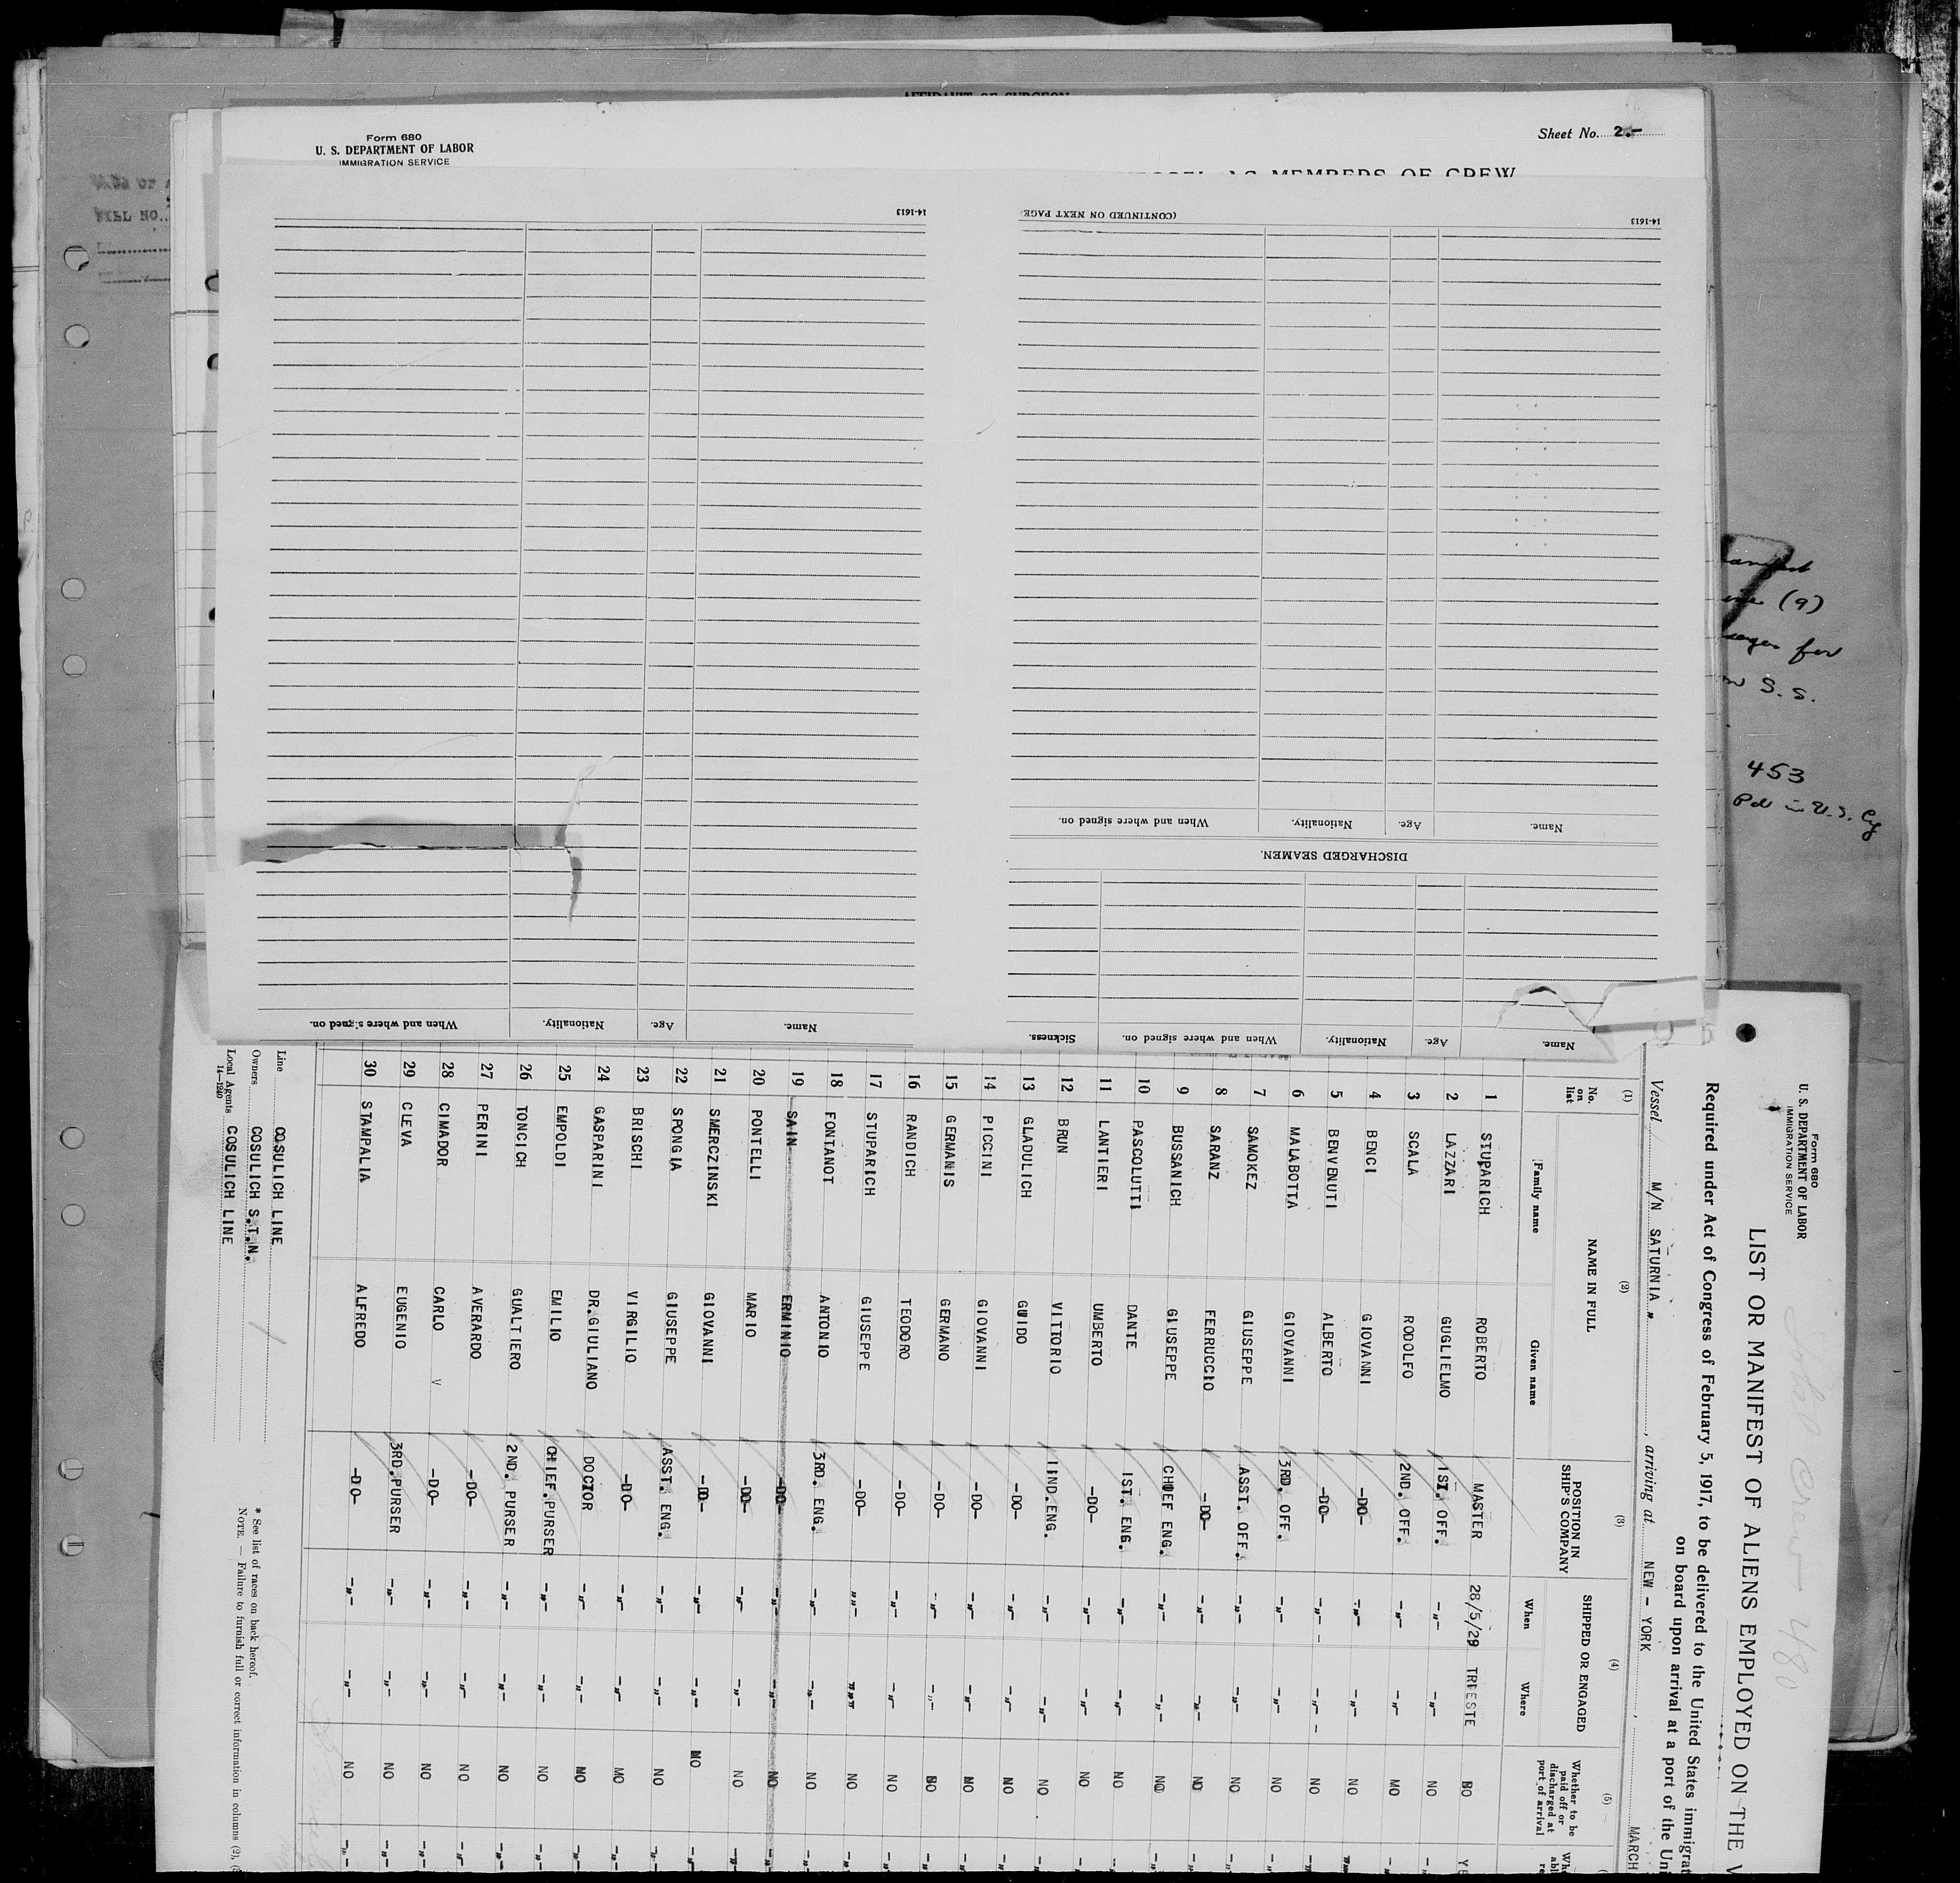 AFFIDAVIT OF SURGEON
Form 680
U. S. DEPARTMENT OF LABOR
IMMIGRATION SERVICE
Sheet No. 2.-
AS MEMBERS OF CREW
14-1613
(CONTINUED ON NEXT PAGE)
14-1613
Name. Age. Nationality. When and where signed on.
DISCHARGED SEAMEN.
Name. Age. Nationality. When and where signed on. Sickness.
Name. Age. Nationality. When and where signed on.
(9)
for
S. S.
453
Form 680
U. S. DEPARTMENT OF LABOR
IMMIGRATION SERVICE
LIST OR MANIFEST OF ALIENS EMPLOYED ON THE V
Required under Act of Congress of February 5, 1917, to be delivered to the United States immigrat
on board upon arrival at a port of the Uni
Vessel M/N SATURNIA " , arriving at NEW - YORK , MARCH
(1) (2) (3) (4) (5)
No. on list NAME IN FULL POSITION IN SHIP'S COMPANY SHIPPED OR ENGAGED Whether to be paid off or discharged at port of arrival
Family name Given name When Where
1 STUPARICH ROBERTO MASTER 28/5/29 TRIESTE NO YE
2 LAZZARI GUGLIELMO 1ST. OFF. -"- -"- NO -"-
3 SCALA RODOLFO 2ND. OFF. -"- -"- NO -"-
4 BENCI GIOVANNI -DO- -"- -"- NO -"-
5 BENVENUTI ALBERTO -DO- -"- -"- NO -"-
6 MALABOTTA GIOVANNI 3RD. OFF. -"- -"- NO -"-
7 SAMOKEZ GIUSEPPE ASST. OFF. -"- -"- NO -"-
8 SARANZ FERRUCCIO -DO- -"- -"- NO -"-
9 BUSSANICH GIUSEPPE CHIEF ENG. -"- -"- NO -"-
10 PASCOLUTTI DANTE 1ST. ENG. -"- -"- NO -"-
11 LANTIERI UMBERTO -DO- -"- -"- NO -"-
12 BRUN VITTORIO IIND. ENG. -"- -"- NO -"-
13 GLADULICH GUIDO -DO- -"- -"- NO -"-
14 PICCINI GIOVANNI -DO- -"- -"- NO -"-
15 GERMANIS GERMANO -DO- -"- -"- NO -"-
16 RANDICH TEODORO -DO- -"- -"- NO -"-
17 STUPARICH GIUSEPPE -DO- -"- -"- NO -"-
18 FONTANOT ANTONIO 3RD. ENG. -"- -"- NO -"-
19 SAIN ERMINIO -DO- -"- -"- NO -"-
20 PONTELLI MARIO -DO- -"- -"- NO -"-
21 SMERCZINSKI GIOVANNI -DO- -"- -"- NO -"-
22 SPONGIA GIUSEPPE ASST. ENG. -"- -"- NO -"-
23 BRISCHI VIRGILIO -DO- -"- -"- NO -"-
24 GASPARINI DR.GIULIANO DOCTOR -"- -"- NO -"-
25 EMPOLDI EMILIO CHIEF.PURSER -"- -"- NO -"-
26 TONCICH GUALTIERO 2ND. PURSER -"- -"- NO -"-
27 PERINI AVERARDO -DO- -"- -"- NO -"-
28 CIMADOR CARLO V -DO- -"- -"- NO -"-
29 CLEVA EUGENIO 3RD.PURSER -"- -"- NO -"-
30 STAMPALIA ALFREDO -DO- -"- -"- NO -"-
Line COSULICH LINE
Owners COSULICH S.T.N.
Local Agents COSULICH LINE
14—1240
* See list of races on back hereof.
NOTE. — Failure to furnish full or correct information in columns (2), (3